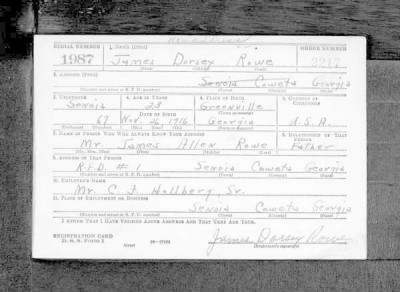 SERIAL NUMBER 1. NAME (Print) ORDER NUMBER
1987 James Dorsey Rowe 2217
(First) (Middle) (Last)
2. ADDRESS (Print)
Senoia Coweta Georgia
(Number and street or R. F. D. number) (Town) (County) (State)
3. TELEPHONE 4. AGE IN YEARS 5. PLACE OF BIRTH 6. COUNTRY OF CITIZENSHIP
Senoia 23 Greenville
DATE OF BIRTH
67 Nov. 26 1916 Georgia U.S.A.
(Exchange) (Number) (Mo.) (Day) (Yr.) (State or country)
7. NAME OF PERSON WHO WILL ALWAYS KNOW YOUR ADDRESS 8. RELATIONSHIP OF THAT PERSON
Mr. James Allen Rowe Father
(Mr., Mrs., Miss) (First) (Middle) (Last)
9. ADDRESS OF THAT PERSON
R.F.D. # 1 Senoia Coweta Georgia
(Number and street or R. F. D. number) (Town) (County) (State)
10. EMPLOYER'S NAME
Mr. C. F. Hollberg, Sr.
11. PLACE OF EMPLOYMENT OR BUSINESS
Senoia Coweta Georgia
(Number and street or R. F. D. number) (Town) (County) (State)
I AFFIRM THAT I HAVE VERIFIED ABOVE ANSWERS AND THAT THEY ARE TRUE.
REGISTRATION CARD
D. S. S. Form 1 (over) James Dorsey Rowe
(Registrant's signature)